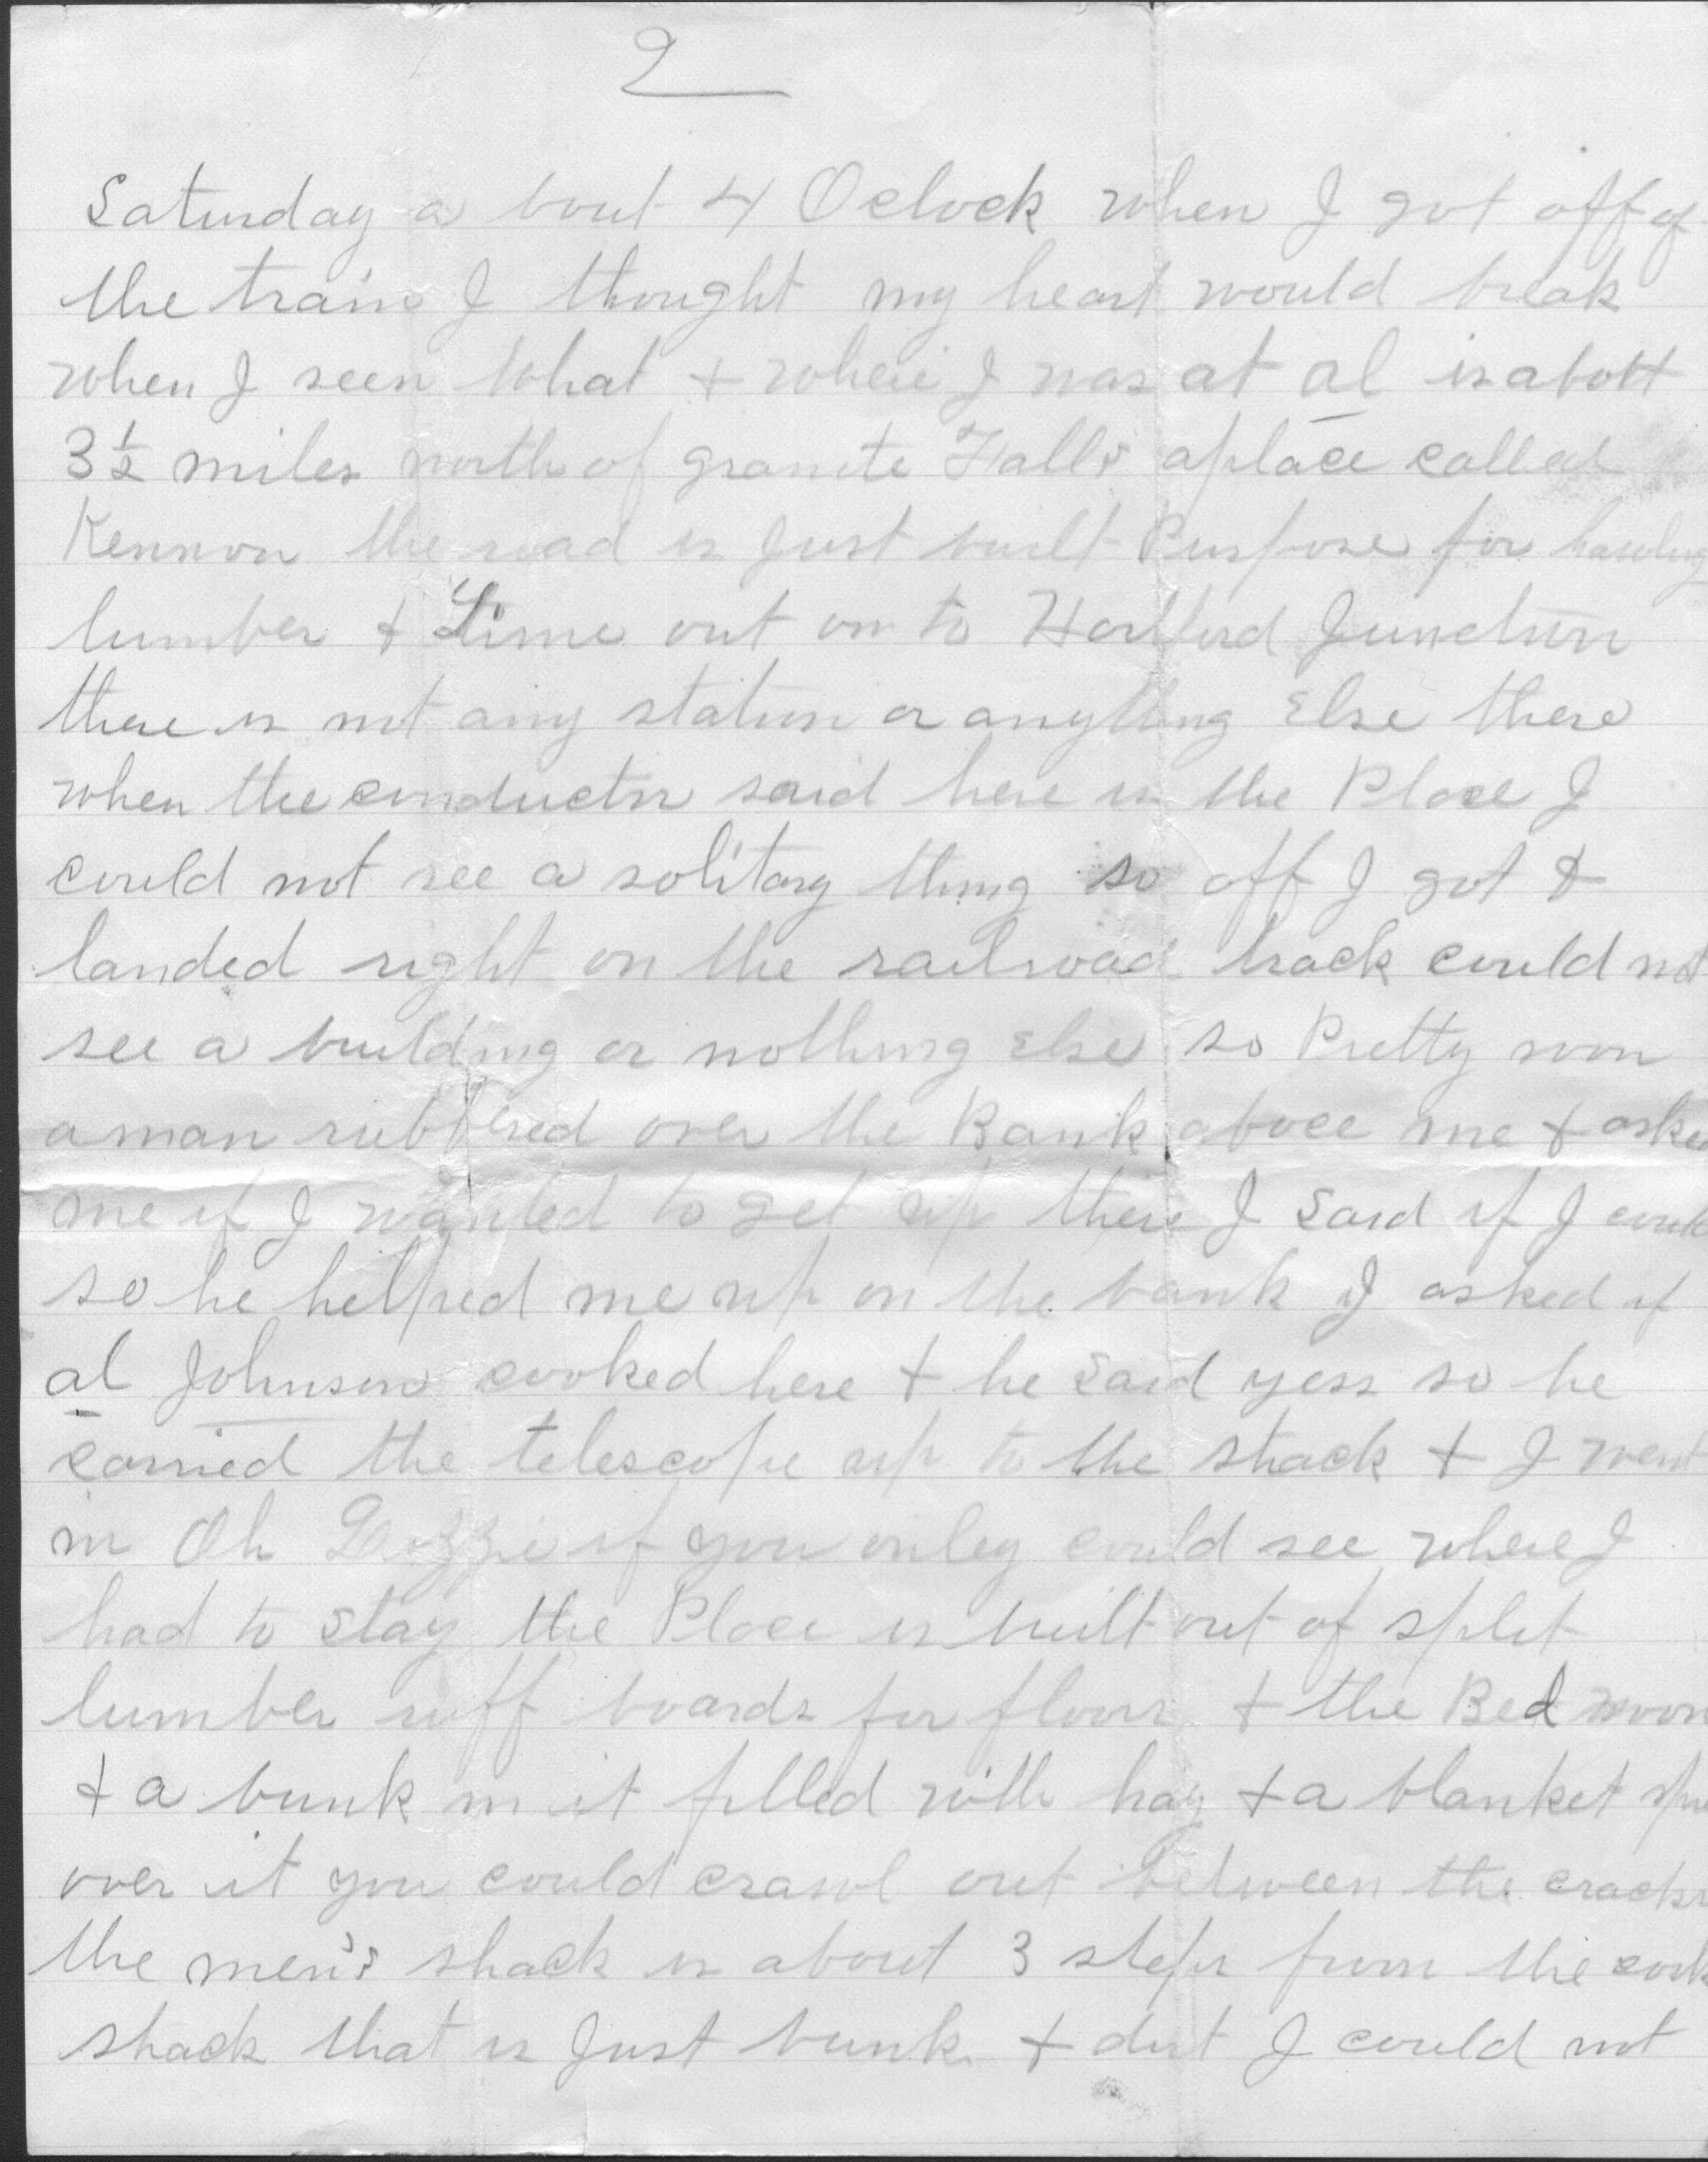 2
Saturday a bout 4 Oclock when I got off of
the train I thought my heart would break
when I seen what + where I was at al is abott
3 1/2 miles north of granite Falls aplace called
Kennon the road is Just built Purpose for hauling
lumber + Lime out on to Hartford Junction
there is not any station or anything Else there
when the conductor said here is the Place I
could not see a solitary thing so off I got &
landed right on the railroad track could not
see a building or nothing Else so Pretty soon
aman rubbered over the Bank above me + asked
me if I wanted to get up there I said if I could
so he helped me up on the bank I asked if
al Johnson cooked here + he said yess so he
carried the telescope up to the shack + I went
in Oh if you onley could see where I
had to stay the Place is built out of split
lumber ruff boards for floors + the Bed room
+ a bunk in it filled with hay + a blanket
over it you could crawl out between the cracks
the men's shack is about 3 steps from the cook
shack that is Just bunk + dirt I could not